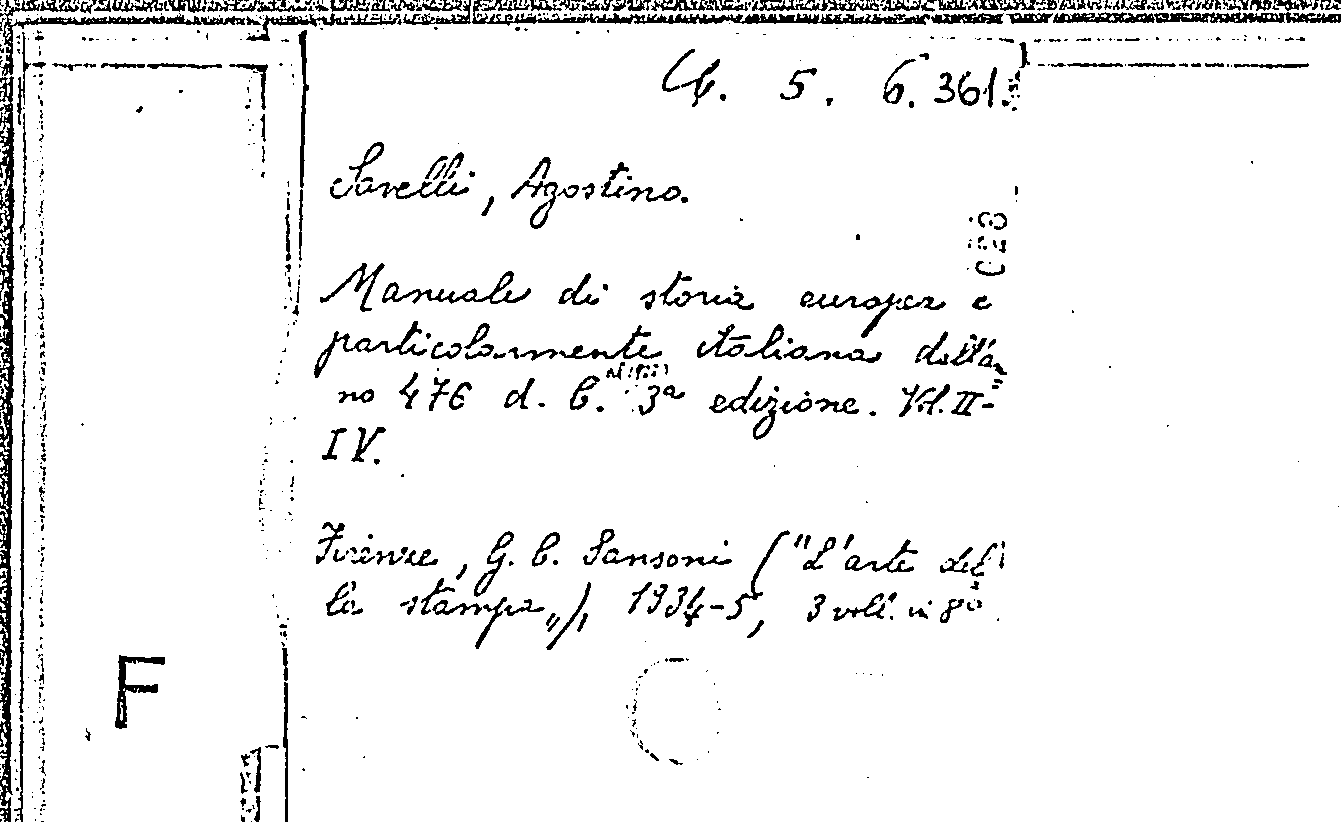 5. 6.361.
Savelli, Agostino.
028
Manuale di storia europea e
particolarmente italiana dall'an
no 476 d. C. 3ª edizione. Vol. II-
IV.
Firenze, G. C. Sansoni ("L'arte del
la stampa„), 1934-5, 3 voll. in 8º.
F